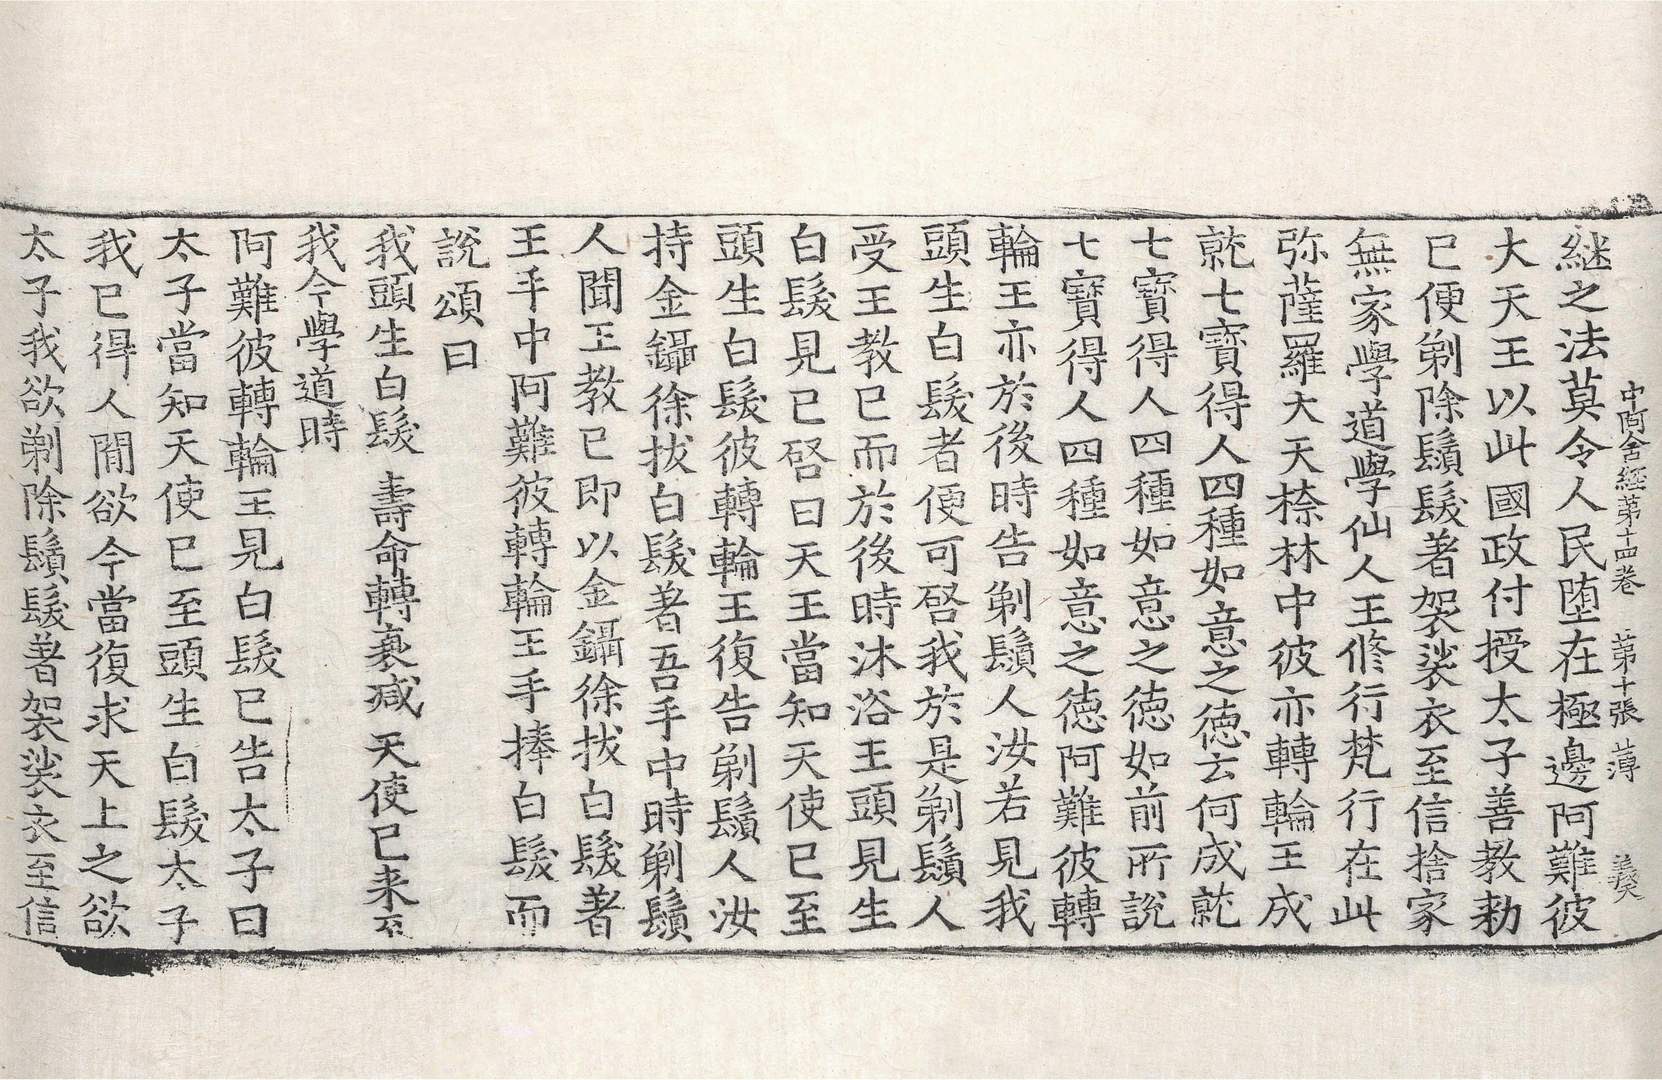 中阿含經第十四卷 第十張 薄
継之法莫令人民堕在極邊阿難彼
大天王以此國政付授太子善教勅
已便剃除鬚髮著袈裟衣至信捨家
無家學道學仙人王修行梵行在此
弥薩羅大天㮈林中彼亦轉輪王成
就七寶得人四種如意之德云何成就
七寶得人四種如意之德如前所說
七寶得人四種如意之德阿難彼轉
輪王亦於後時告剃鬚人汝若見我
頭生白髮者便可啓我於是剃鬚人
受王教已而於後時沐浴王頭見生
白髮見已啓曰天王當知天使已至
頭生白髮彼轉輪王復告剃鬚人汝
持金鑷徐拔白髮著吾手中時剃鬚
人聞王教已即以金鑷徐拔白髮著
王手中阿難彼轉輪王手捧白髮而
說頌曰
我頭生白髮 壽命轉衰减 天使已来至
我今學道時
阿難彼轉輪王見白髮已告太子曰
太子當知天使已至頭生白髮太子
我已得人間欲今當復求天上之欲
太子我欲剃除鬚髮著袈裟衣至信